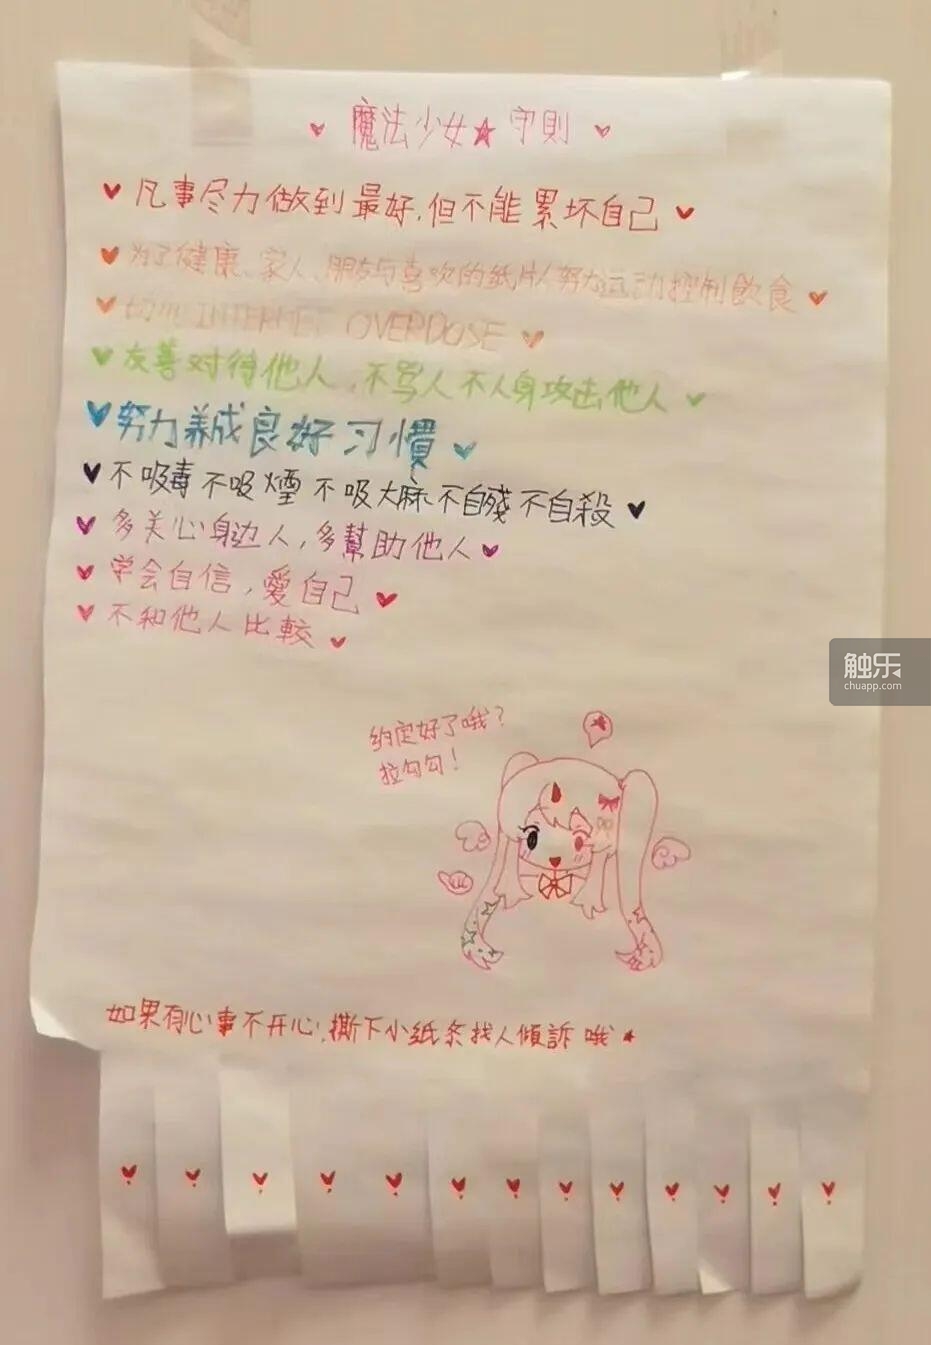 魔法少女★守則
凡事尽力做到最好,但不能累坏自己
为了健康、家人、朋友与喜欢的纸片人努力运动控制飲食
切勿INTERNET OVERDOSE
友善对待他人,不骂人不人身攻击他人
努力养成良好习慣
不吸毒不吸煙不吸大麻不自殘不自殺
多关心身边人,多幫助他人
学会自信,愛自己
不和他人比較
触乐
chuapp.com
约定好了哦?
拉勾勾!
如果有心事不开心,撕下小纸条找人傾訴哦★